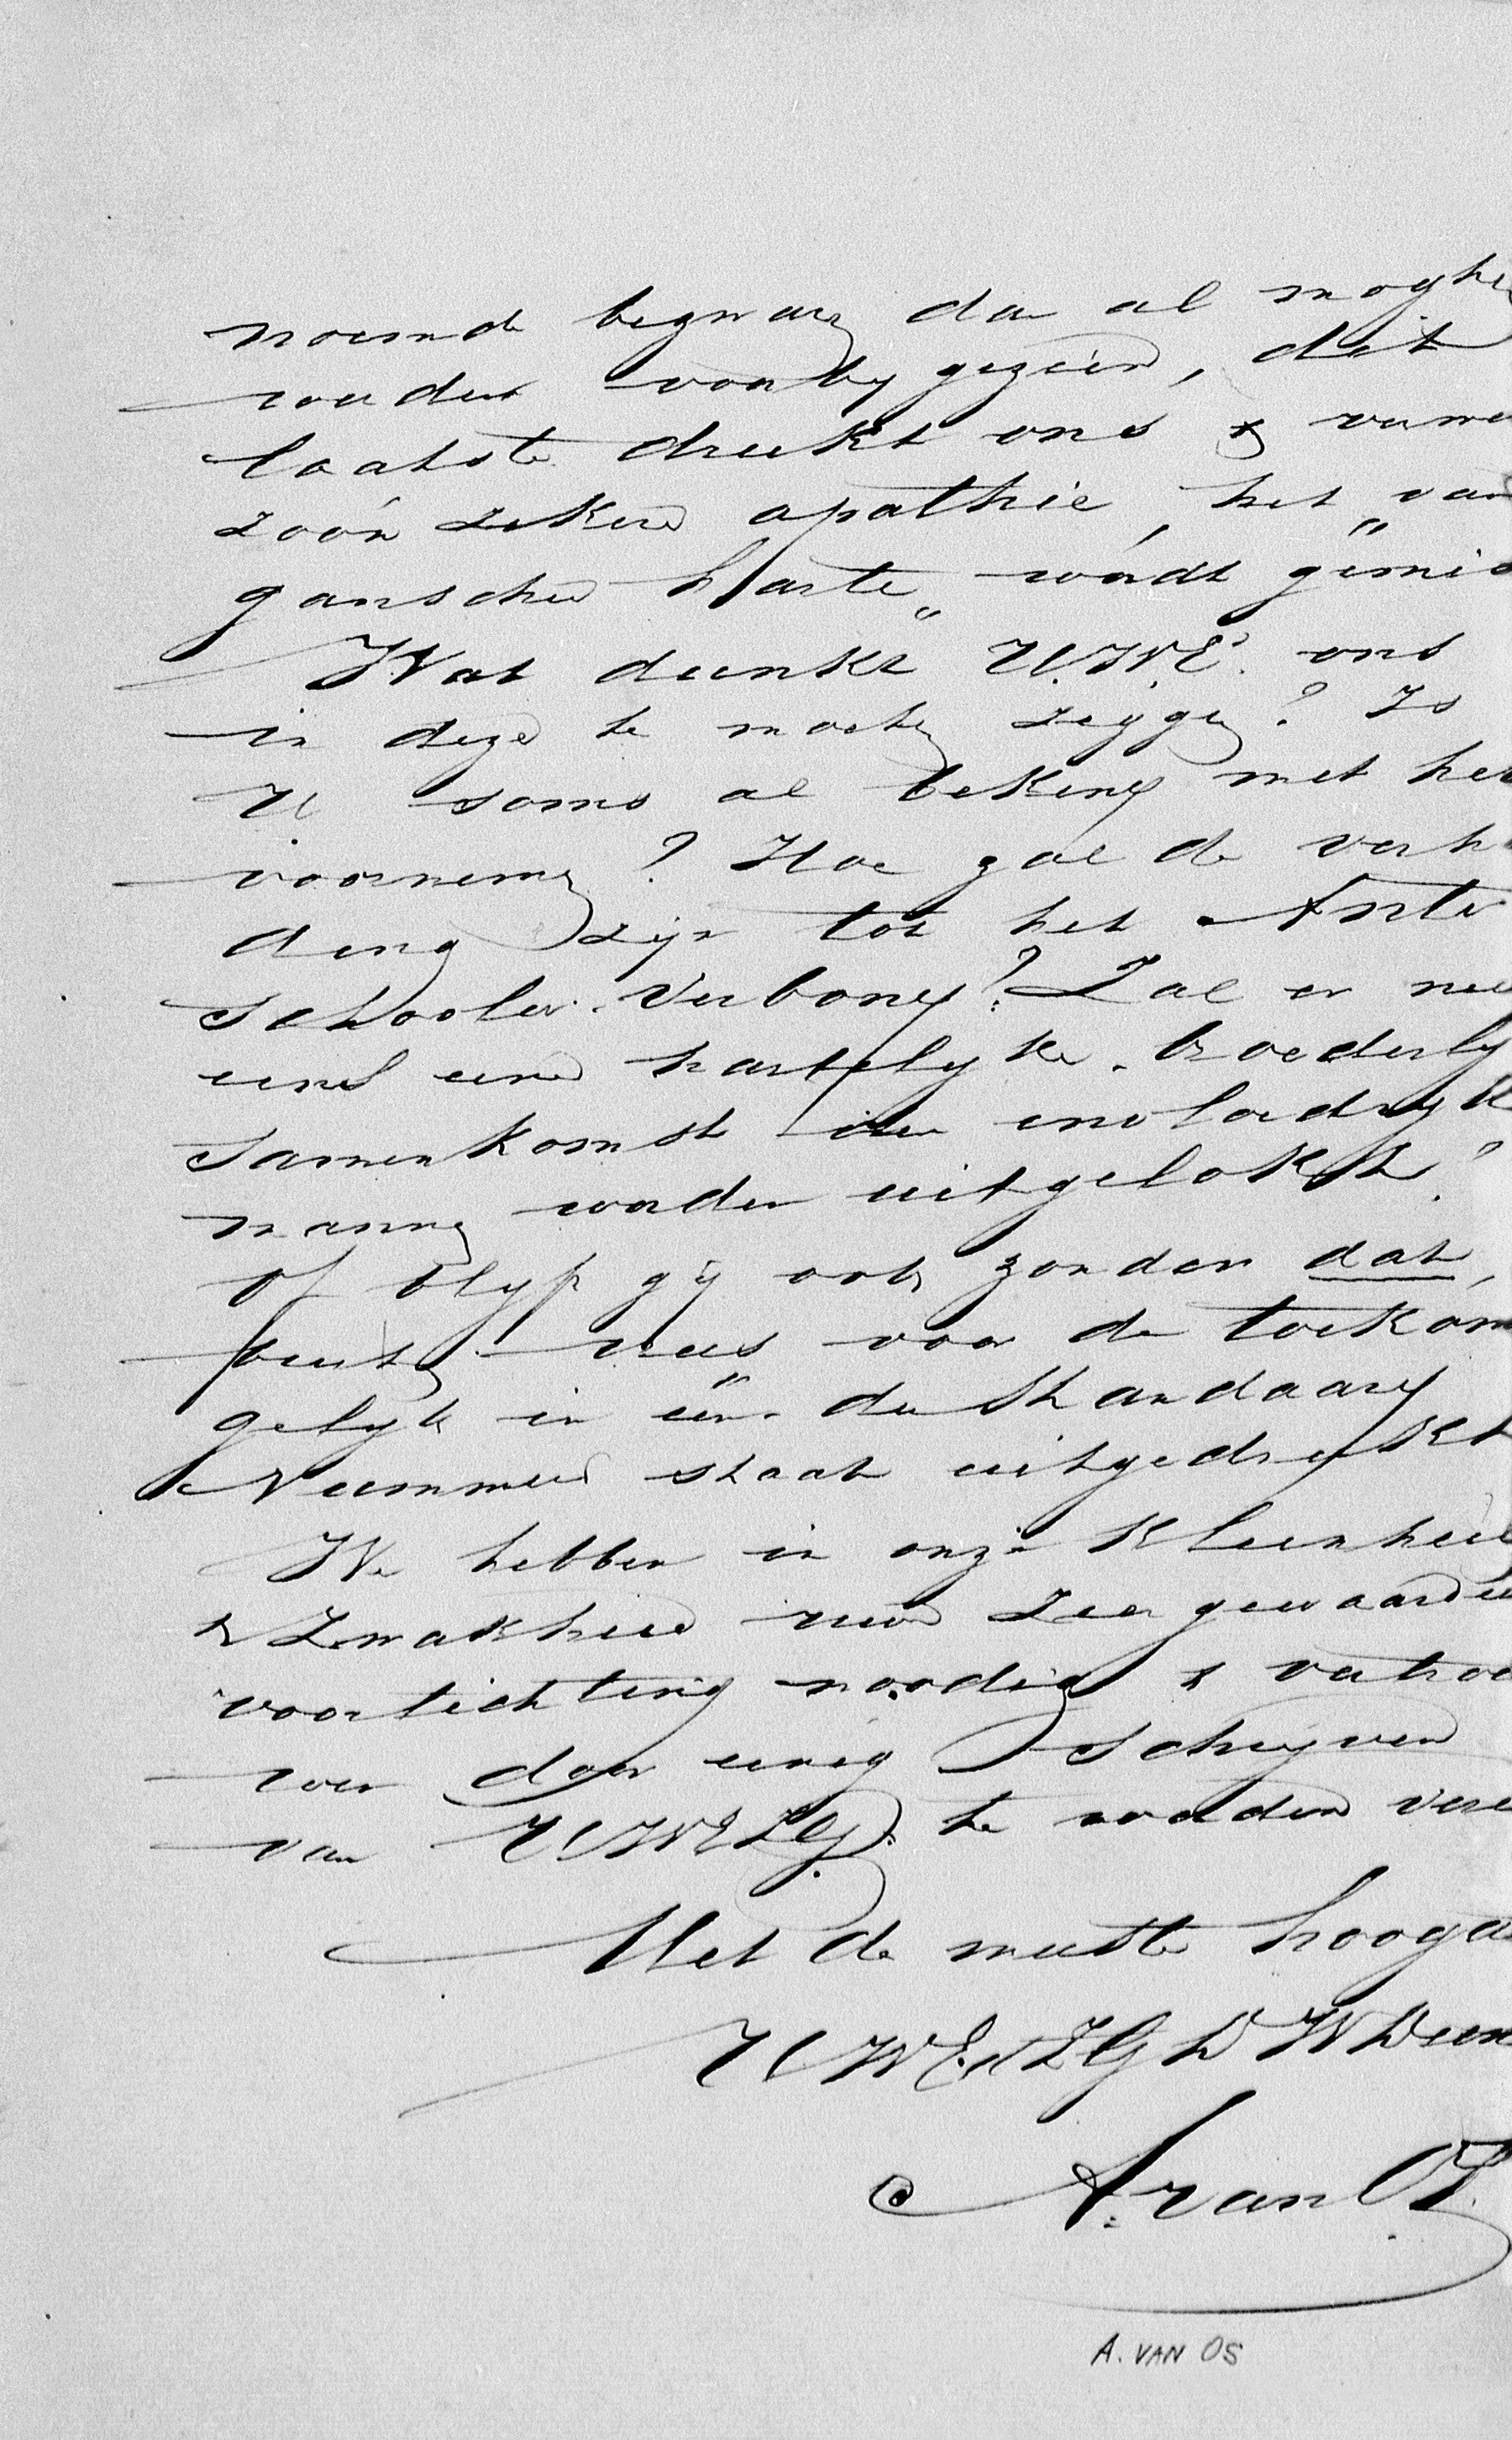 noemde bezwaren dan al mogten
worden voorby gezien, dit
laatste drukt ons &
zoo'n zekere apathie, het „van
ganscher harte" wordt gemis
Wat dunkt U.W.E. ons
in deze te moeten zeggen? Is
U soms al bekend met het
voornemen? Hoe zal de verh
ding zijn tot het Anti
schoolw. Verbond? Zal er nu
eens eene hartelyke. broederly
samenkomst van invloedryke
mannen worden uitgelokt?
of blyft gij ook zonder dat,
buiten vrees voor de toekom
gelyk in een der Standaard
Nummers staat uitgedrukt
We hebben in onze kleinheid
& Zwakheid uwe Zeer gewaardee
voorlichting noodig & vertrou
wen door eenig schryven
van UWEZG. te worden vere
Met de meeste hooga
UWEdZG D W Dien
A. van Os.
A. VAN OS